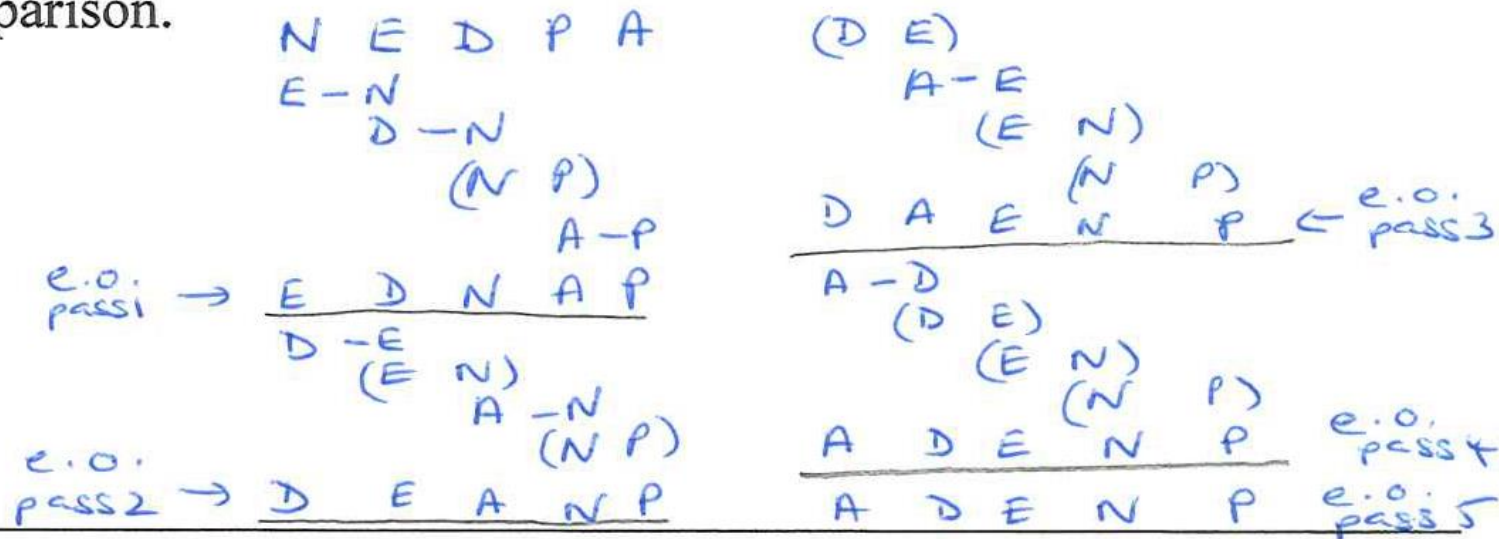 parison.
N E D P A
E – N
D – N
(N P)
A – P
e.o. pass1 → E D N A P
D – E
(E N)
A – N
(N P)
e.o. pass2 → D E A N P
(D E)
A – E
(E N)
(N P)
D A E N P ← e.o. pass3
A – D
(D E)
(E N)
(N P)
A D E N P e.o. pass4
A D E N P e.o. pass5